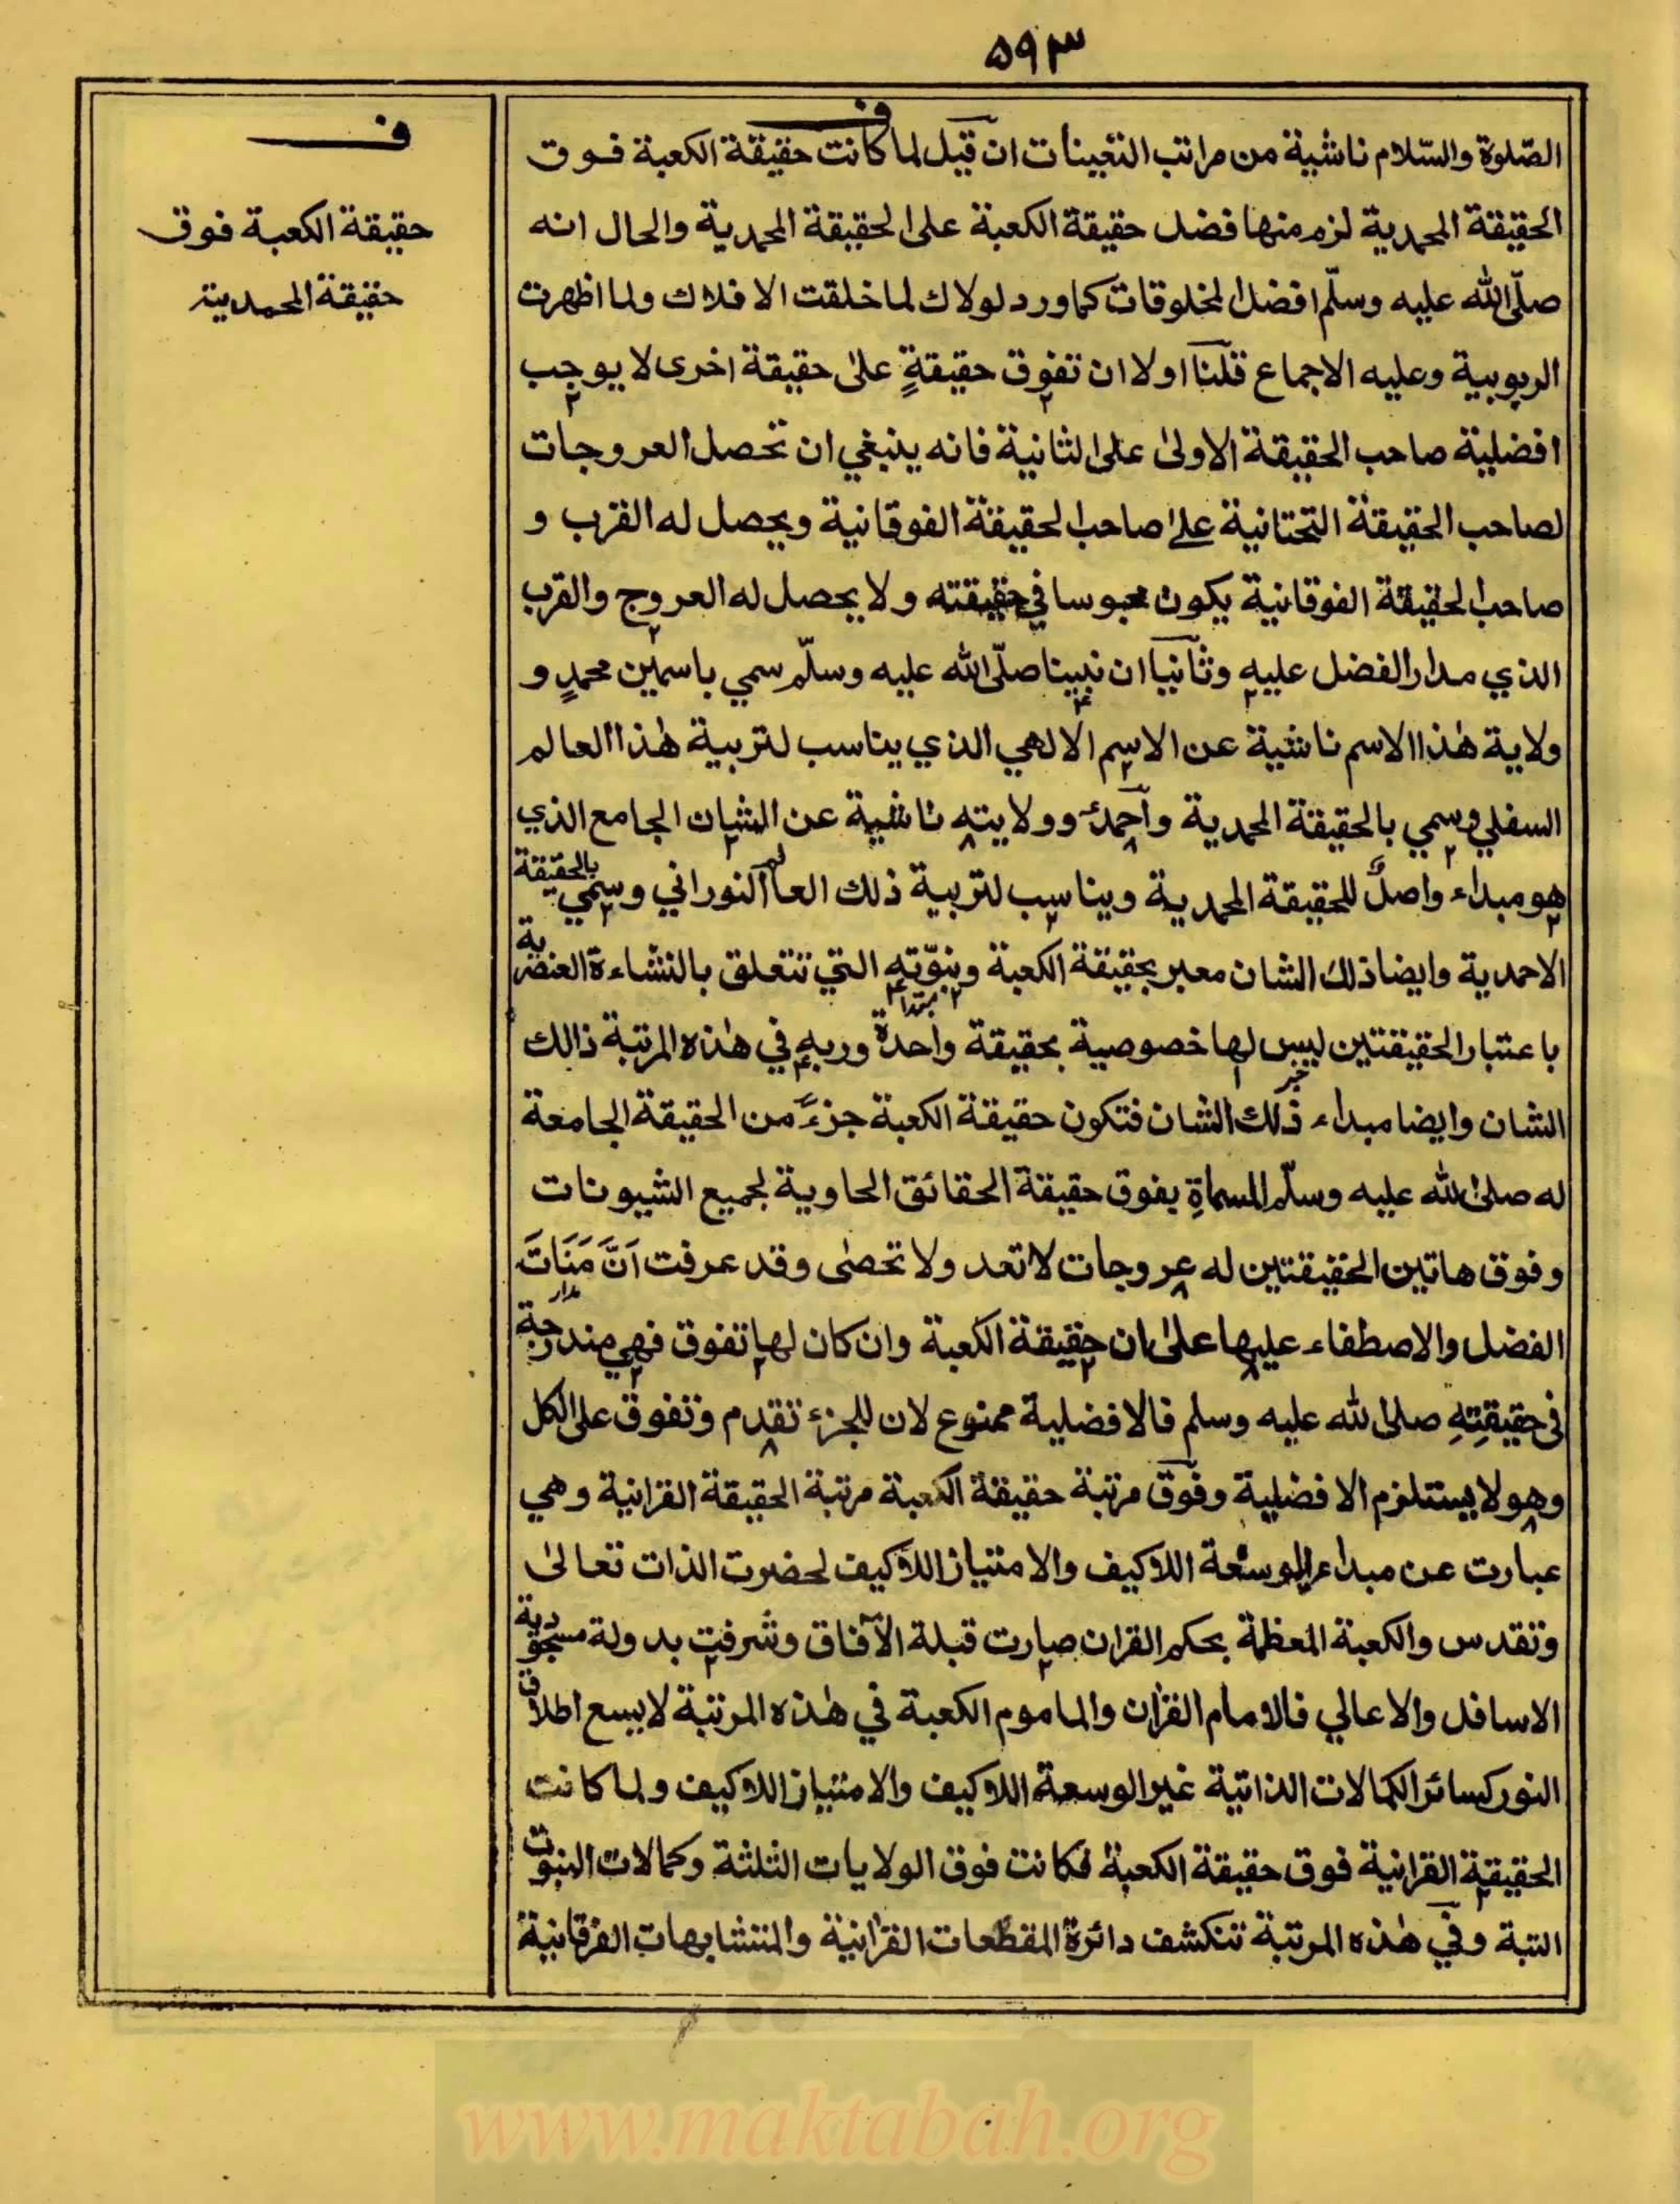 ۵۹۳
ف
الصّلوة والسّلام ناشية من مراتب التعينات ان قيل لما كانت حقيقة الكعبة فوق
الحقيقة المحمدية لزم منها فضل حقيقة الكعبة على الحقيقة المحمدية والحال انه
صلّى الله عليه وسلّم افضل المخلوقات كما ورد لولاك لما خلقت الافلاك ولما اظهرت
الربوبية وعليه الاجماع قلنا اولا ان تفوق حقيقةٍ على حقيقة اخرى لا يوجب
افضلية صاحب الحقيقة الاولى على الثانية فانه ينبغي ان تحصل العروجات
لصاحب الحقيقة التحتانية على صاحب الحقيقة الفوقانية ويحصل له القرب و
صاحب الحقيقة الفوقانية يكون محبوسا في حقيقته ولا يحصل له العروج والقرب
الذي مدار الفضل عليه وثانيا ان نبينا صلّى الله عليه وسلّم سمي باسمين محمدٍ و
ولاية هٰذا الاسم ناشية عن الاسم الالهي الذي يناسب لتربية هٰذا العالم
السفلي وسمي بالحقيقة المحمدية واحمدُ وولايته ناشية عن الشان الجامع الذي
هو مبداء واصلٌ للحقيقة المحمدية ويناسب لتربية ذلك العالم النوراني وسمي بالحقيقة
الاحمدية وايضا ذلك الشان معبر بحقيقة الكعبة ونبوّته التي تتعلق بالنشاءة العنصرية
باعتبار الحقيقتين ليس لها خصوصية بحقيقة واحدة وربه في هٰذه المرتبة ذالك
الشان وايضا مبداء ذلك الشان فتكون حقيقة الكعبة جزءً من الحقيقة الجامعة
له صلى الله عليه وسلّم المسماةِ يفوق حقيقة الحقائق الحاوية لجميع الشيونات
وفوق هاتين الحقيقتين له عروجات لا تعد ولا تحصٰى وقد عرفت اَنَّ مَنَاتَ
مدار
الفضل والاصطفاء عليها على ان حقيقة الكعبة وان كان لها تفوق فهي مندرجة
فى حقيقتِهِ صلى الله عليه وسلم فالافضلية ممنوع لان للجزء تقدم وتفوق على الكل
وهو لا يستلزم الافضلية وفوق مرتبة حقيقة الكعبة مرتبة الحقيقة القرانية وهي
عبارت عن مبداء الوسعة اللاكيف والامتياز اللاكيف لحضرت الذات تعالى
وتقدس والكعبة المعظمة بحكم القران صارت قبلة الآفاق وشرفت بدولة مسجودية
الاسافل والاعالي فالامام القران والماموم الكعبة في هٰذه المرتبة لا يسع اطلاق
النور كسائر الكمالات الذاتية غير الوسعة اللاكيف والامتياز اللاكيف ولما كانت
الحقيقة القرانية فوق حقيقة الكعبة فكانت فوق الولايات الثلثة وكمالات النبوت
التبة وفي هٰذه المرتبة تنكشف دائرة المقطعات القرانية والمتشابهات الفرقانية
ف
حقيقة الكعبة فوق
حقيقة المحمدية
www.maktabah.org